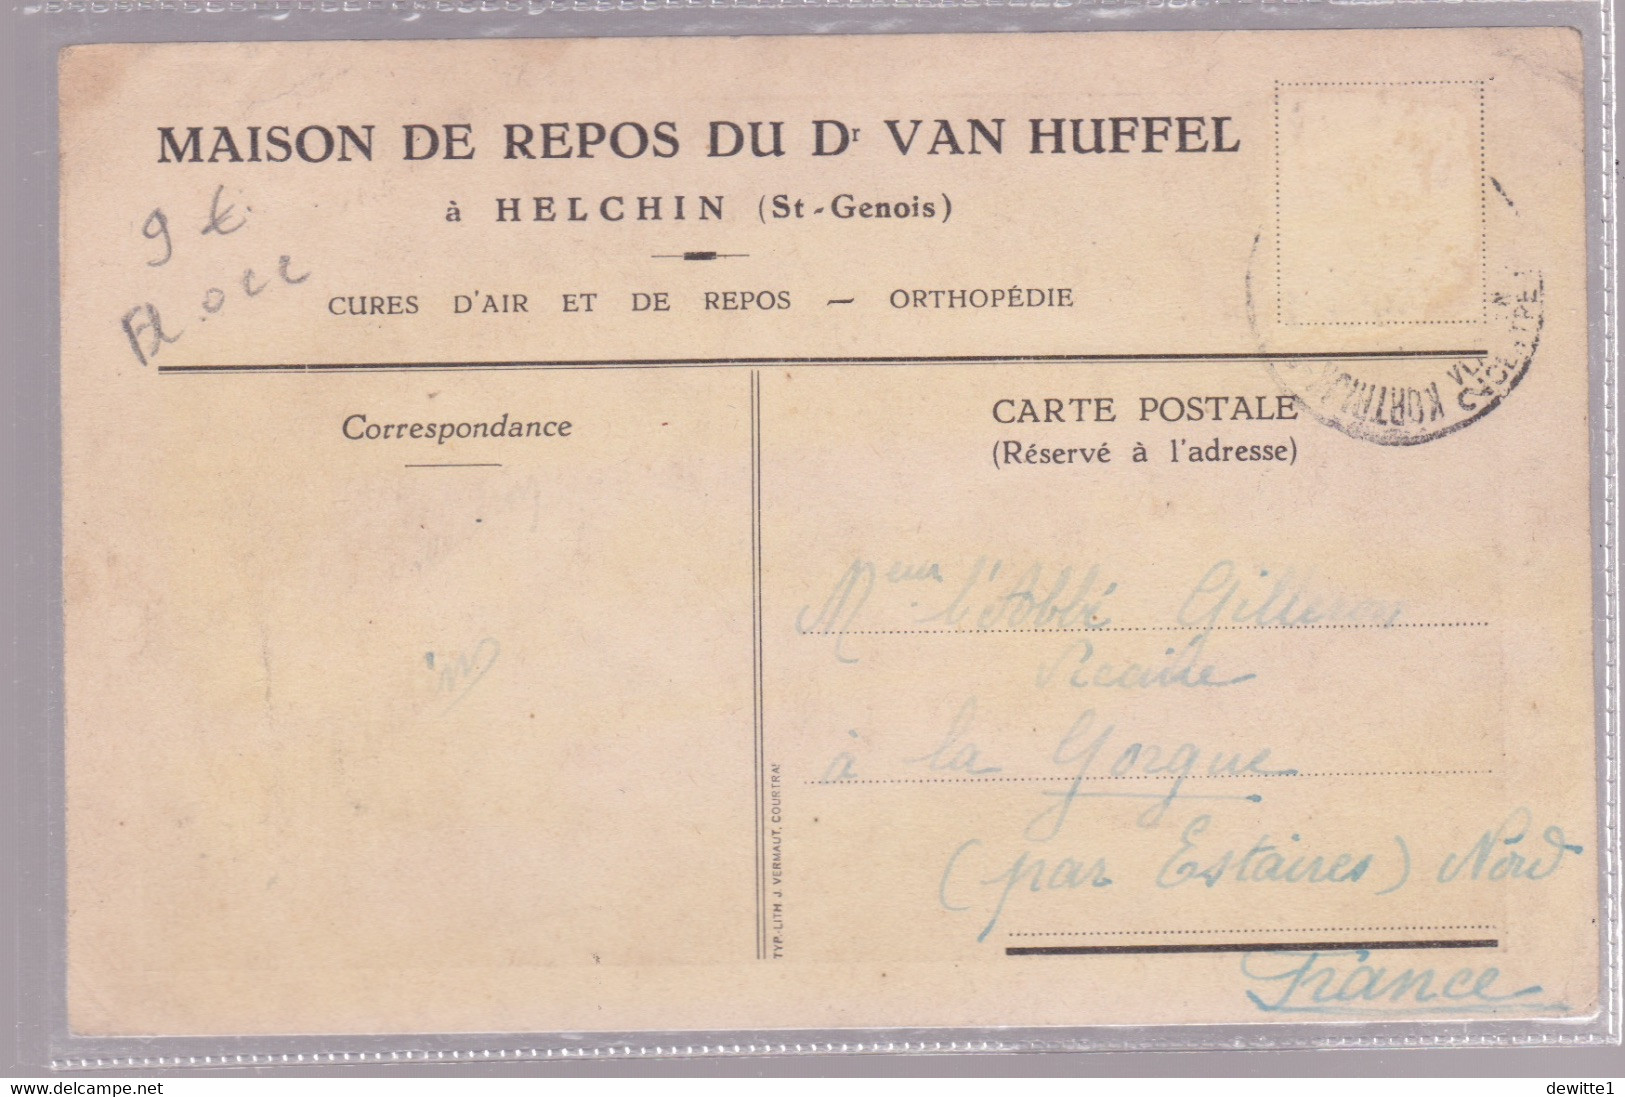 MAISON DE REPOS DU Dr VAN HUFFEL
à HELCHIN (St-Genois)
CURES D'AIR ET DE REPOS — ORTHOPÉDIE
9 €.
Fl. occ
Correspondance
CARTE POSTALE
(Réservé à l'adresse)
KORTRIJK
TYP.-LITH. J. VERMAUT, COURTRAI
Meur l'Abbé Gilleron
à la Gorgue
(par Estaires) Nord
France
delcampe.net
dewitte1